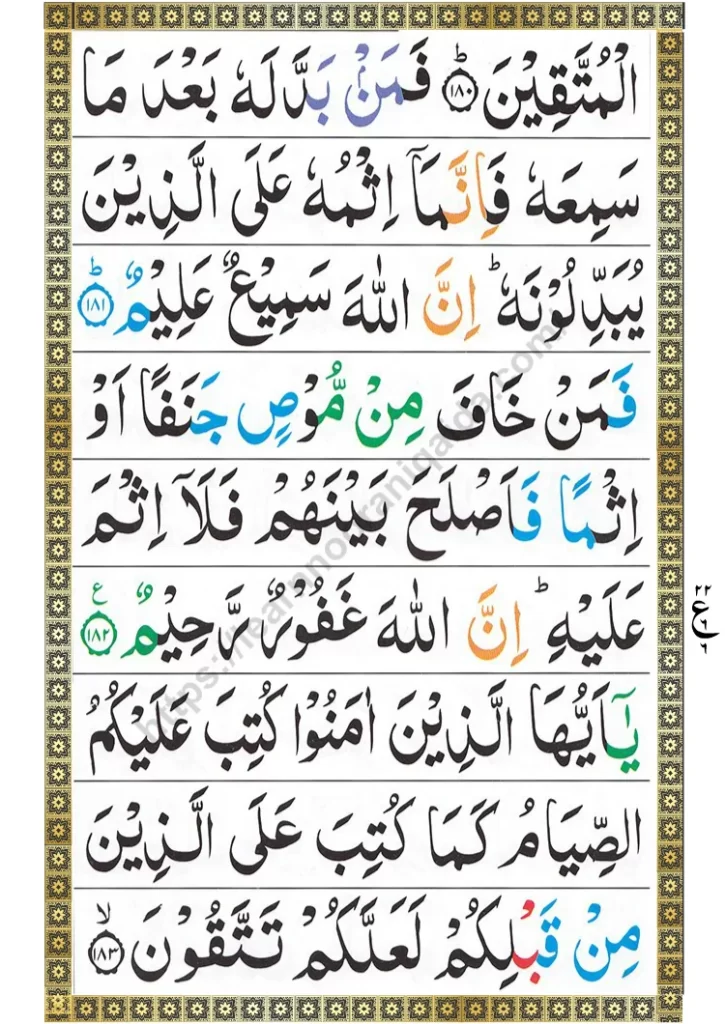 الْمُتَّقِيْنَ ؕ ﴿۱۸۰﴾ فَمَنْۢ بَدَّلَهٗ بَعْدَ مَا
سَمِعَهٗ فَاِنَّمَاۤ اِثْمُهٗ عَلَى الَّذِيْنَ
يُبَدِّلُوْنَهٗ ؕ اِنَّ اللّٰهَ سَمِيْعٌ عَلِيْمٌ ؕ ﴿۱۸۱﴾
فَمَنْ خَافَ مِنْ مُّوْصٍ جَنَفًا اَوْ
اِثْمًا فَاَصْلَحَ بَيْنَهُمْ فَلَاۤ اِثْمَ
عَلَيْهِ ؕ اِنَّ اللّٰهَ غَفُوْرٌ رَّحِيْمٌ ع ﴿۱۸۲﴾
يٰۤاَيُّهَا الَّذِيْنَ اٰمَنُوْا كُتِبَ عَلَيْكُمُ
الصِّيَامُ كَمَا كُتِبَ عَلَى الَّذِيْنَ
مِنْ قَبْلِكُمْ لَعَلَّكُمْ تَتَّقُوْنَ ۙ ﴿۱۸۳﴾
https://learnnooraniqaida.com